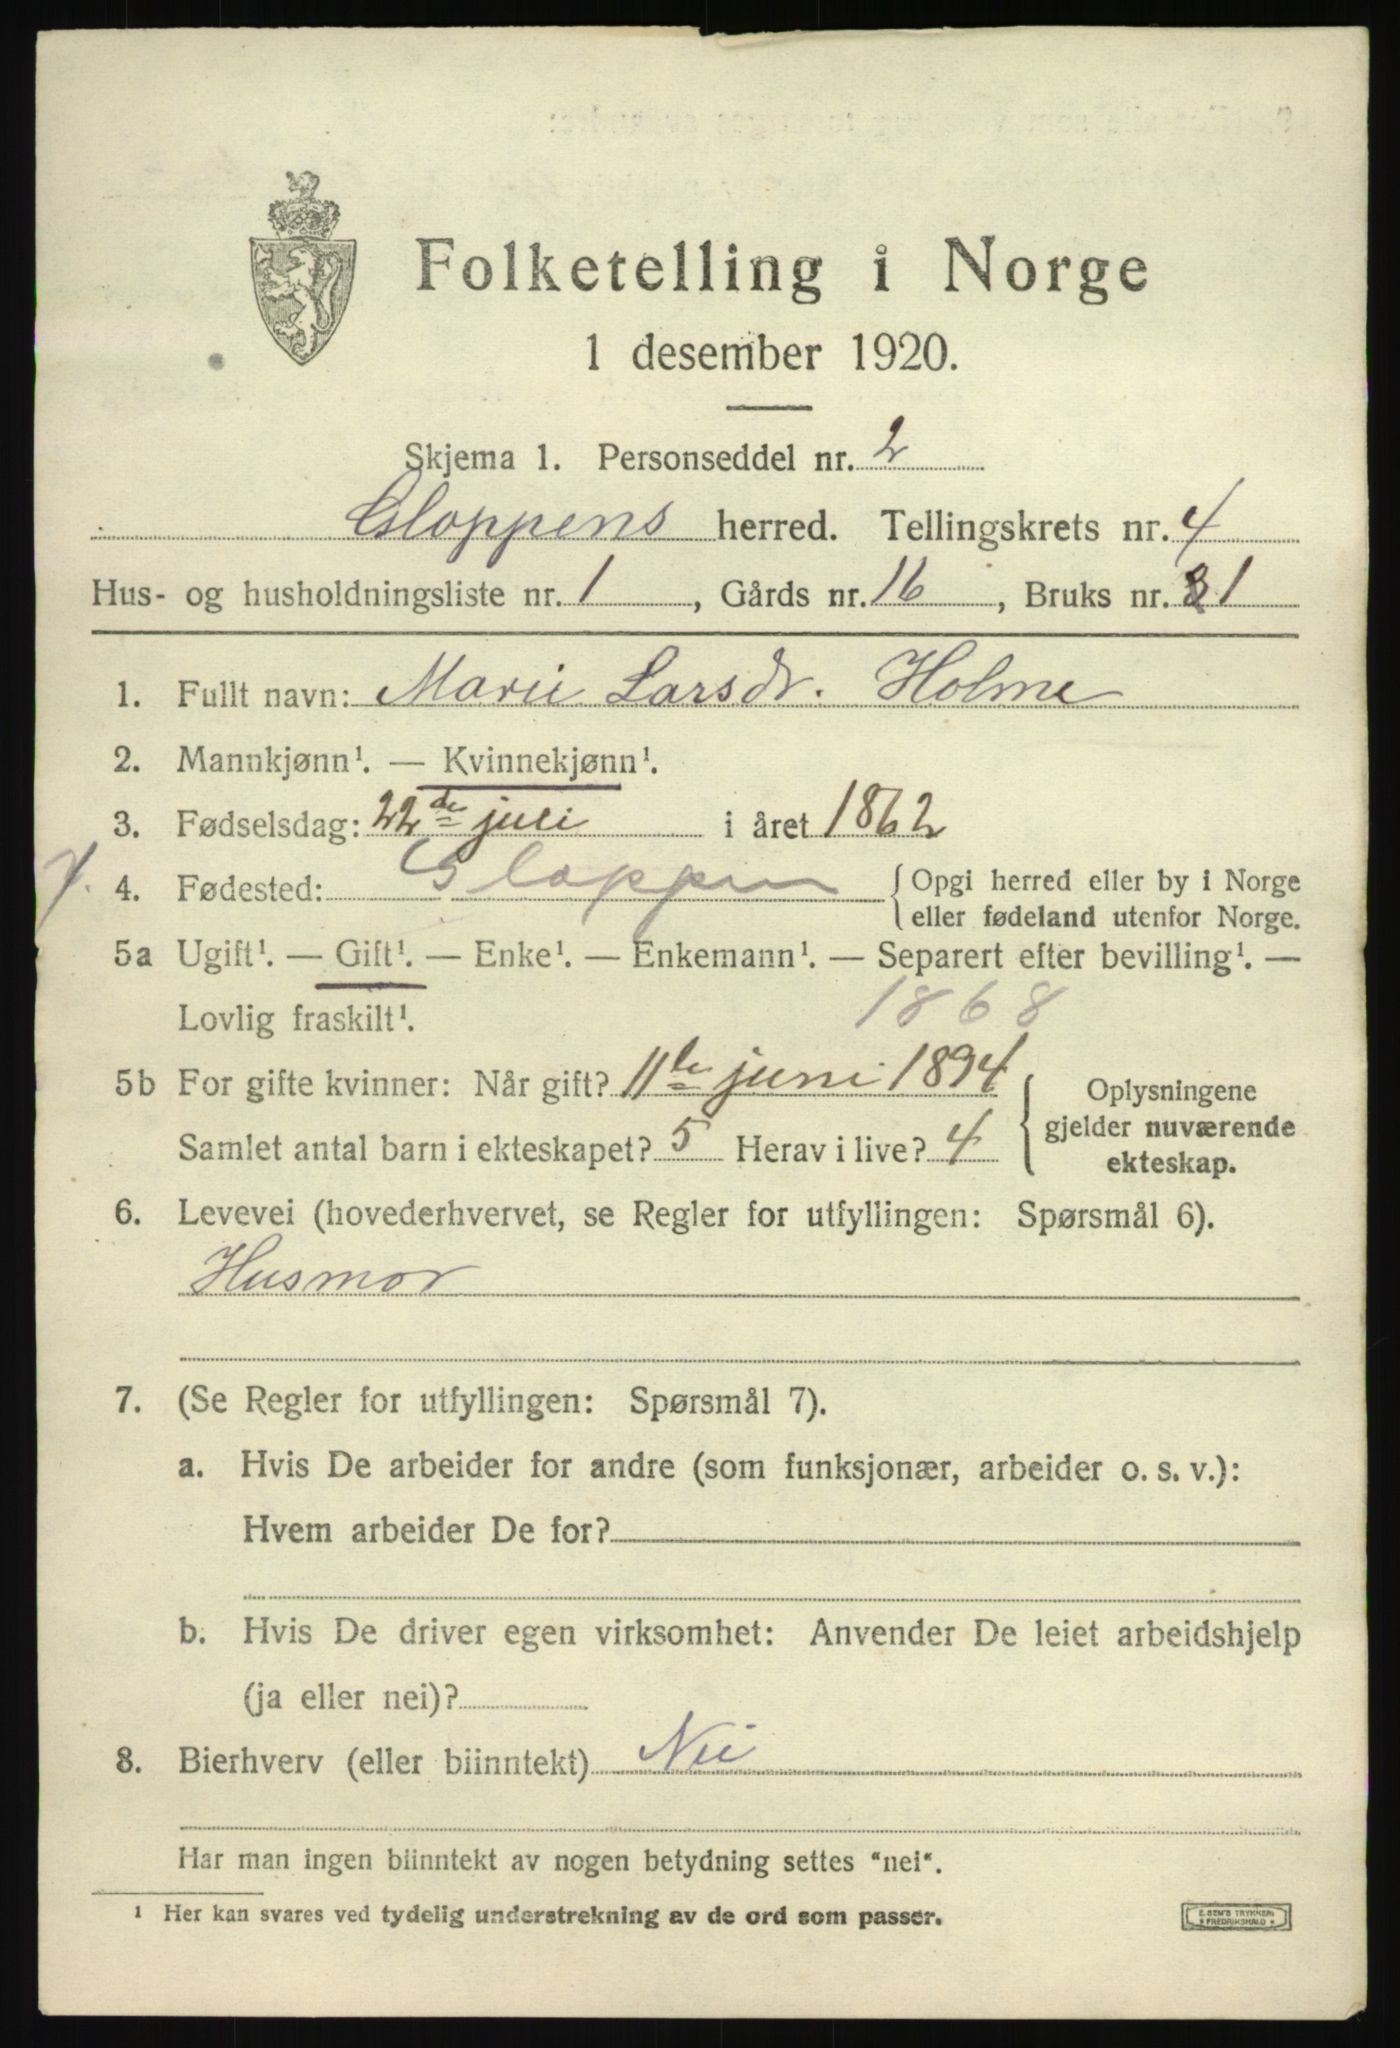 Folketelling i Norge
1 desember 1920.
Skjema 1. Personseddel nr. 2
Gloppens herred. Tellingskrets nr. 4
Hus- og husholdningsliste nr. 1, Gårds nr. 16, Bruks nr. 1
1. Fullt navn: Marie Larsdr. Holme
2. Mannkjønn¹. — Kvinnekjønn¹.
3. Fødselsdag: 22de juli i året 1862
4. Fødested: Gloppen { Opgi herred eller by i Norge
eller fødeland utenfor Norge.
5a Ugift¹. — Gift¹. — Enke¹. — Enkemann¹. — Separert efter bevilling¹. —
Lovlig fraskilt¹. 1868
5b For gifte kvinner: Når gift? 11te juni 1894 { Oplysningene
gjelder nuværende
ekteskap.
Samlet antal barn i ekteskapet? 5 Herav i live? 4
6. Levevei (hovederhvervet, se Regler for utfyllingen: Spørsmål 6).
Husmor
7. (Se Regler for utfyllingen: Spørsmål 7).
a. Hvis De arbeider for andre (som funksjonær, arbeider o. s. v.):
Hvem arbeider De for?
b. Hvis De driver egen virksomhet: Anvender De leiet arbeidshjelp
(ja eller nei)?
8. Bierhverv (eller biinntekt) Nei
Har man ingen biinntekt av nogen betydning settes "nei".
¹ Her kan svares ved tydelig understrekning av de ord som passer.
E. SEM'S TRYKKERI
FREDRIKSHALD